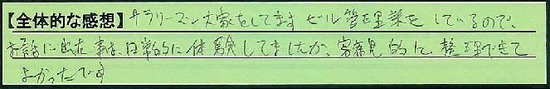 【全体的な感想】サラリーマン大家をしてます ビル管理業をしているので、
お話に出た事は、日常的に体験してましたが、客観的に、整理できて
よかったです